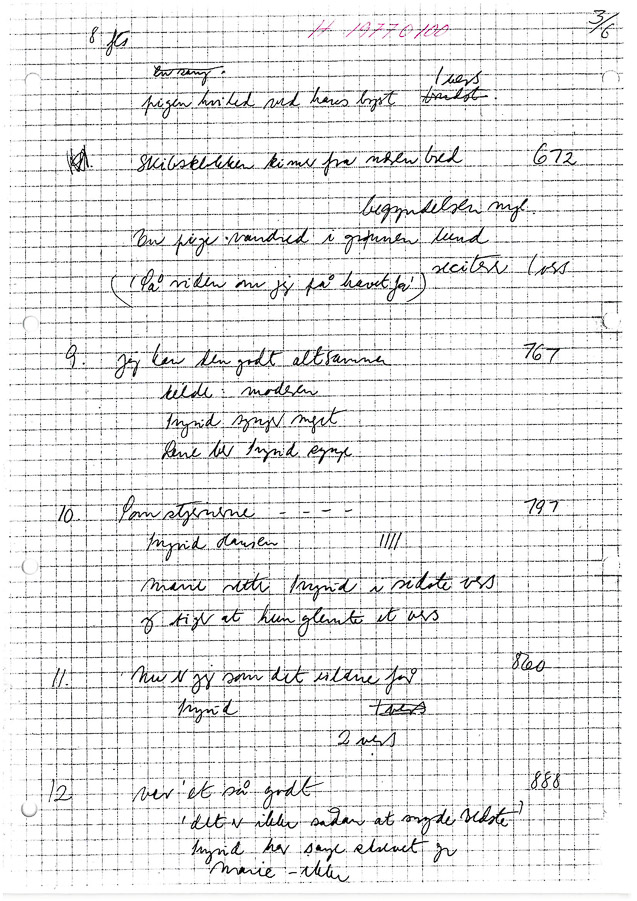 8 fts H 1977 0100 3/6
en sang.
pigen hviled ved hans bryst 1 vers
Skibsklokken kimer fra 672
begyndelsen
En pige vandred i grønnen lund
('På siden om jeg på havet får') reciterer 1 vers
9. jeg kan den godt altsammen 767
kilde: moderen
Ingrid synger meget
Lene ber Ingrid synge
10. Som stjernerne - - - - 797
Ingrid Hansen ||||
Marie retter Ingrid i sidste vers
og siger at hun glemte et vers
11. Nu er jeg som det lam 860
Ingrid 1 vers
2 vers
12 ver' et så godt 888
'det er ikke sådan at de bedste'
Ingrid har sange skrevet
Marie - ikke